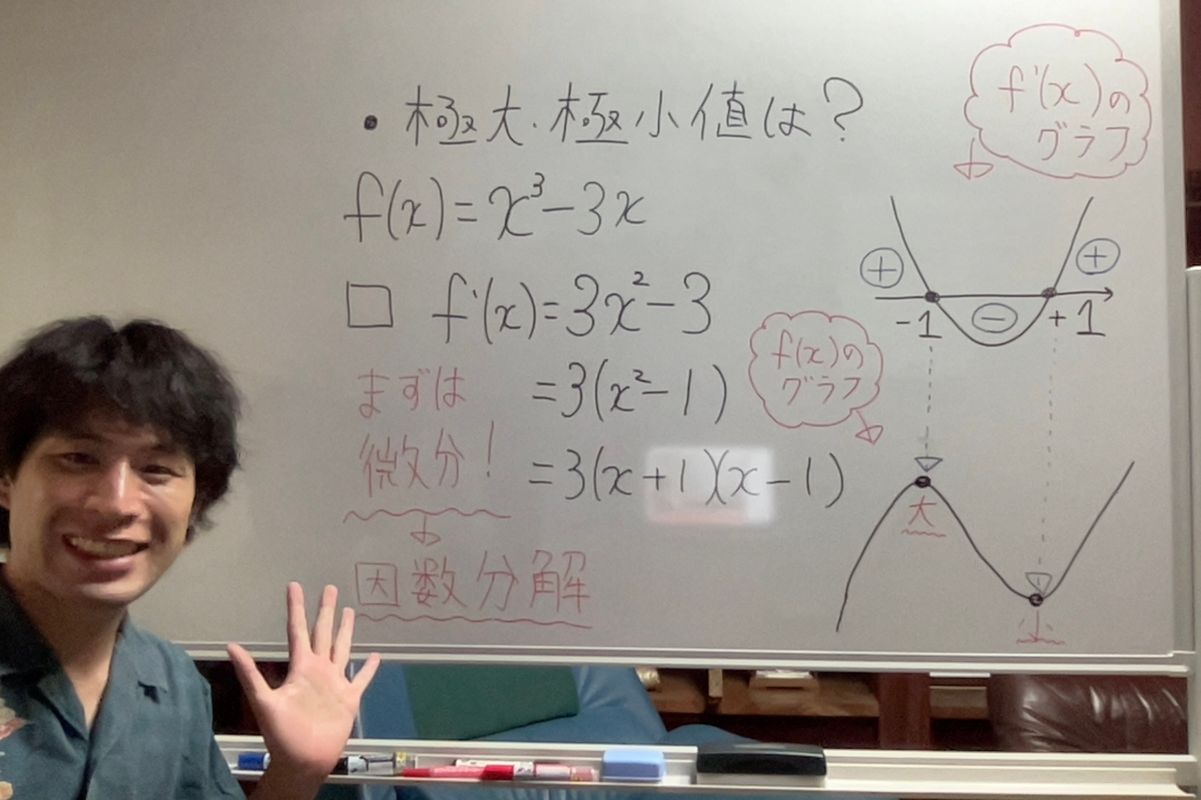 • 極大・極小値は?
f(x)=x³-3x
□ f'(x)=3x²-3
まずは
=3(x²-1)
微分!
=3(x+1)(x-1)
因数分解
f'(x)の
グラフ
+
+
-
-1
+1
f(x)の
グラフ
大
小